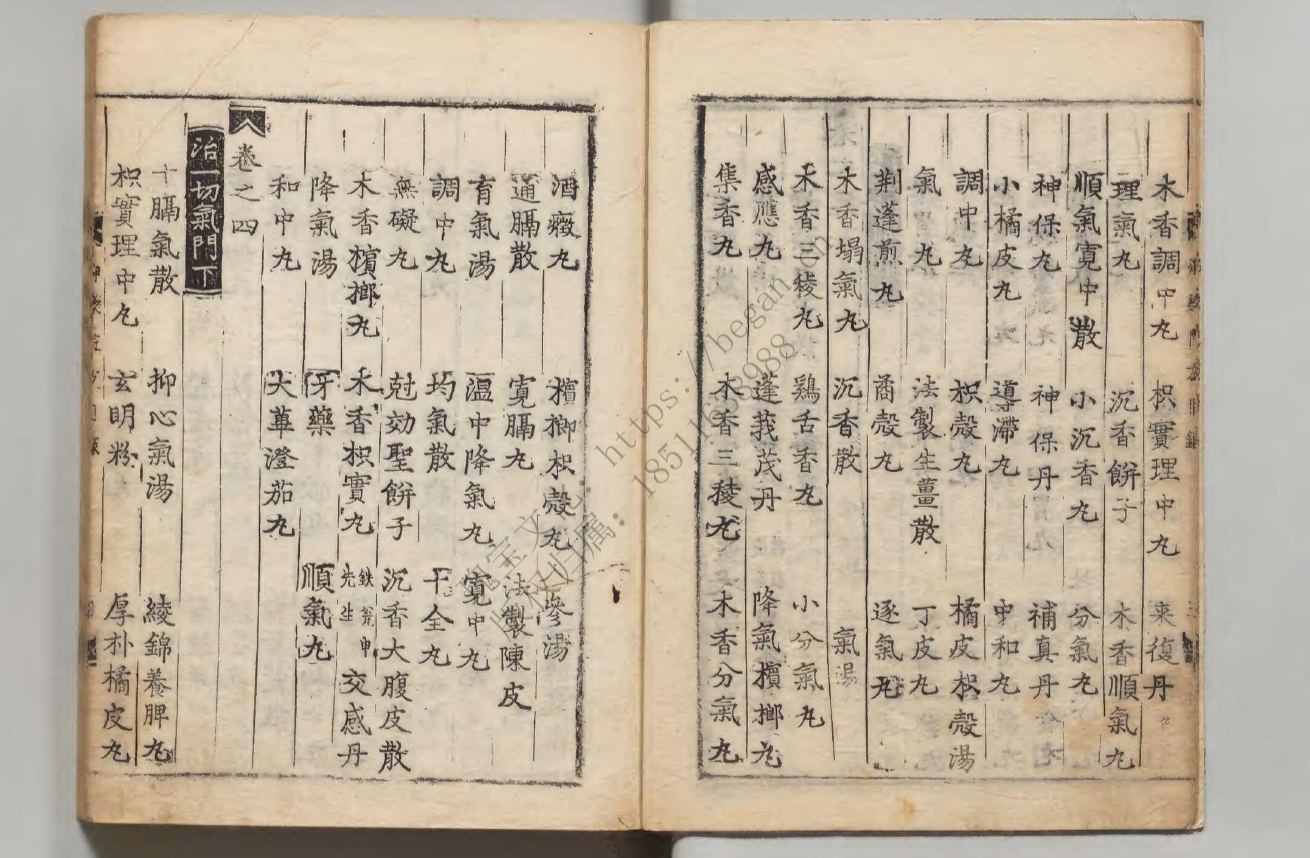 木香調中丸 枳實理中丸 來復丹
理氣丸 沉香餅子 木香順氣丸
順氣寬中散 小沉香丸 分氣丸
神保丸 神保丹 補真丹
小橘皮丸 導滯丸 中和丸
調中丸 枳殼丸 橘皮枳殼湯
氣丸 法製生薑散 丁皮丸
荆蓬煎丸 橘殼丸 逐氣丸
木香塌氣丸 沉香散 氣湯
木香三稜丸 鷄舌香丸 小分氣丸
感應丸 蓬莪茂丹 降氣檳榔丸
集香丸 木香三稜丸 木香分氣丸
酒癥丸 檳榔枳殼丸 參湯
通膈散 寬膈丸 法製陳皮
育氣湯 溫中降氣丸 寬中丸
調中丸 均氣散 十全丸
無礙丸 尅効聖餅子 沉香大腹皮散
木香檳榔丸 木香枳實丸 鉄瓮申先生交感丹
降氣湯 牙藥 順氣丸
和中丸 大蓽澄茄丸
卷之四
治一切氣門下
十膈氣散 抑心氣湯 綾錦養脾丸
枳實理中丸 玄明粉 厚朴橘皮丸
https://began
18511653988